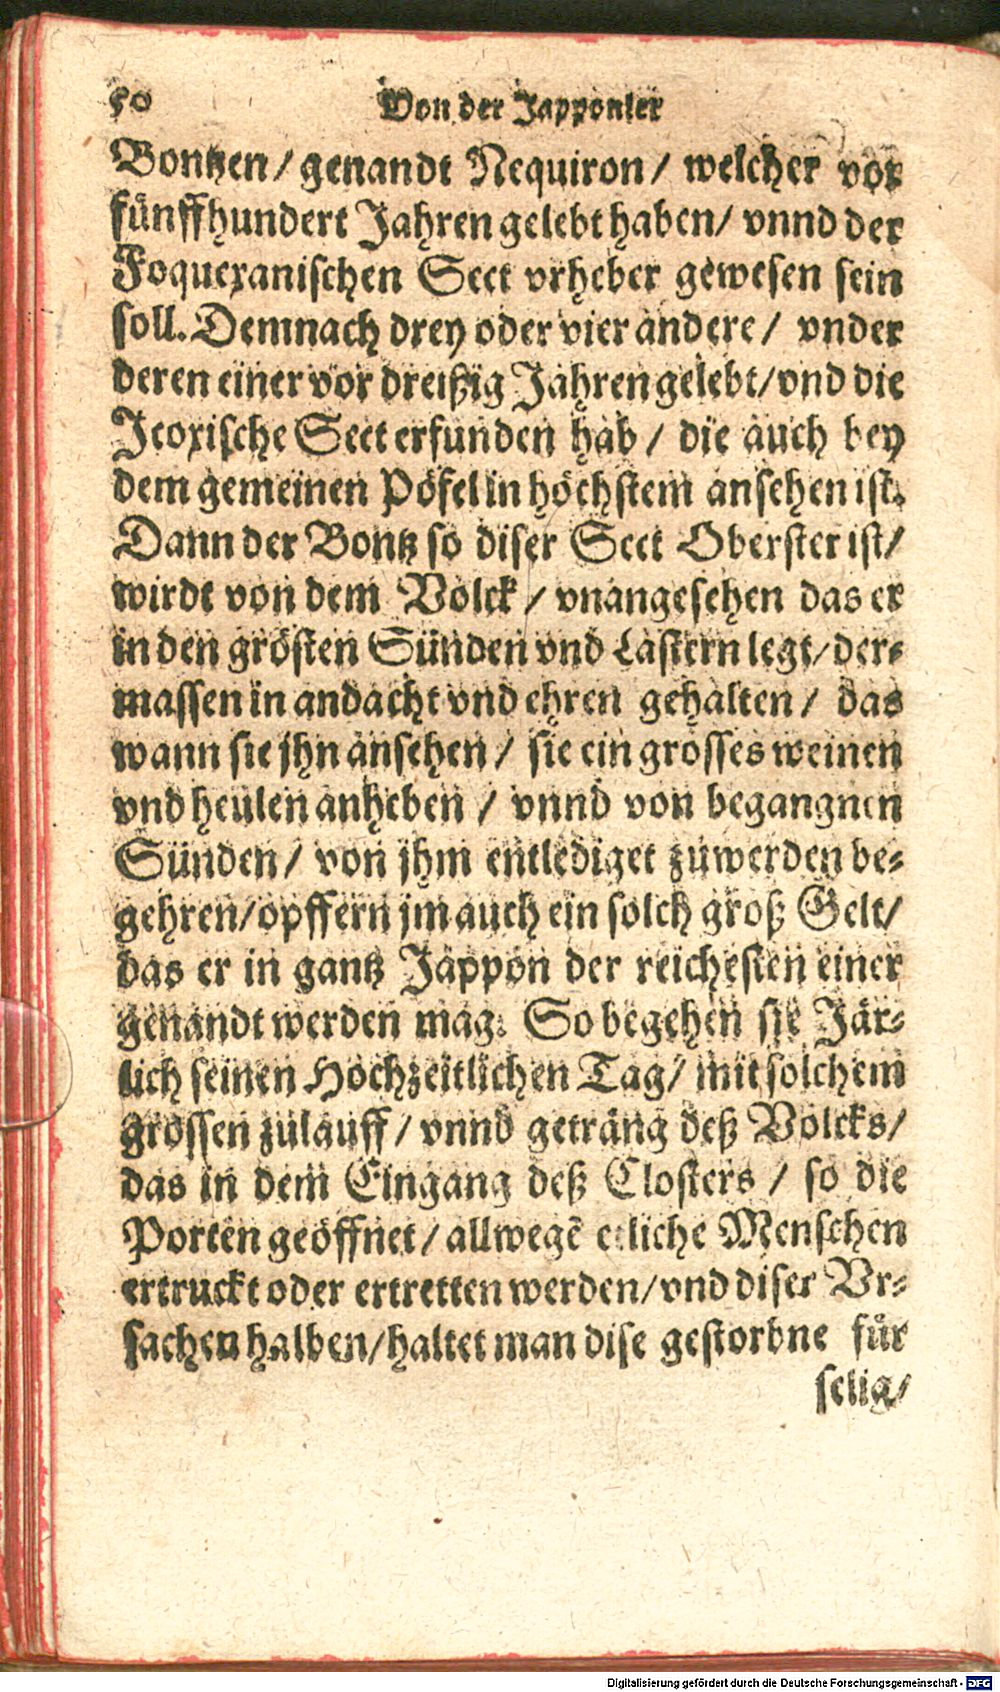 50 Von der Japponier
Bontzen / genandt Nequiron / welcher vor
fünffhundert Jahren gelebt haben / vnnd der
Foquexanischen Sect vrheber gewesen sein
soll. Demnach drey oder vier andere / vnder
deren einer vor dreißig Jahren gelebt / vnd die
Jcoxische Sect erfunden hab / die auch bey
dem gemeinen Pöfel in höchstem ansehen ist.
Dann der Bontz so diser Sect Oberster ist /
wirdt von dem Volck / vnangesehen das er
in den grösten Sünden vnd Lastern legt / der⸗
massen in andacht vnd ehren gehalten / das
wann sie jhn ansehen / sie ein grosses weinen
vnd heulen anheben / vnnd von begangnen
Sünden / von jhm entlediget zuwerden be⸗
gehren / opffern jm auch ein solch groß Gelt /
das er in gantz Jappon der reichesten einer
genandt werden mag. So begehen sie Jär⸗
lich seinen Hochzeitlichen Tag / mit solchem
grossen zulauff / vnnd geträng deß Volcks /
das in dem Eingang deß Closters / so die
Porten geöffnet / allwegẽ etliche Menschen
ertruckt oder ertretten werden / vnd diser Vr⸗
sachen halben / haltet man dise gestorbne für
selig /
Digitalisierung gefördert durch die Deutsche Forschungsgemeinschaft - DFG